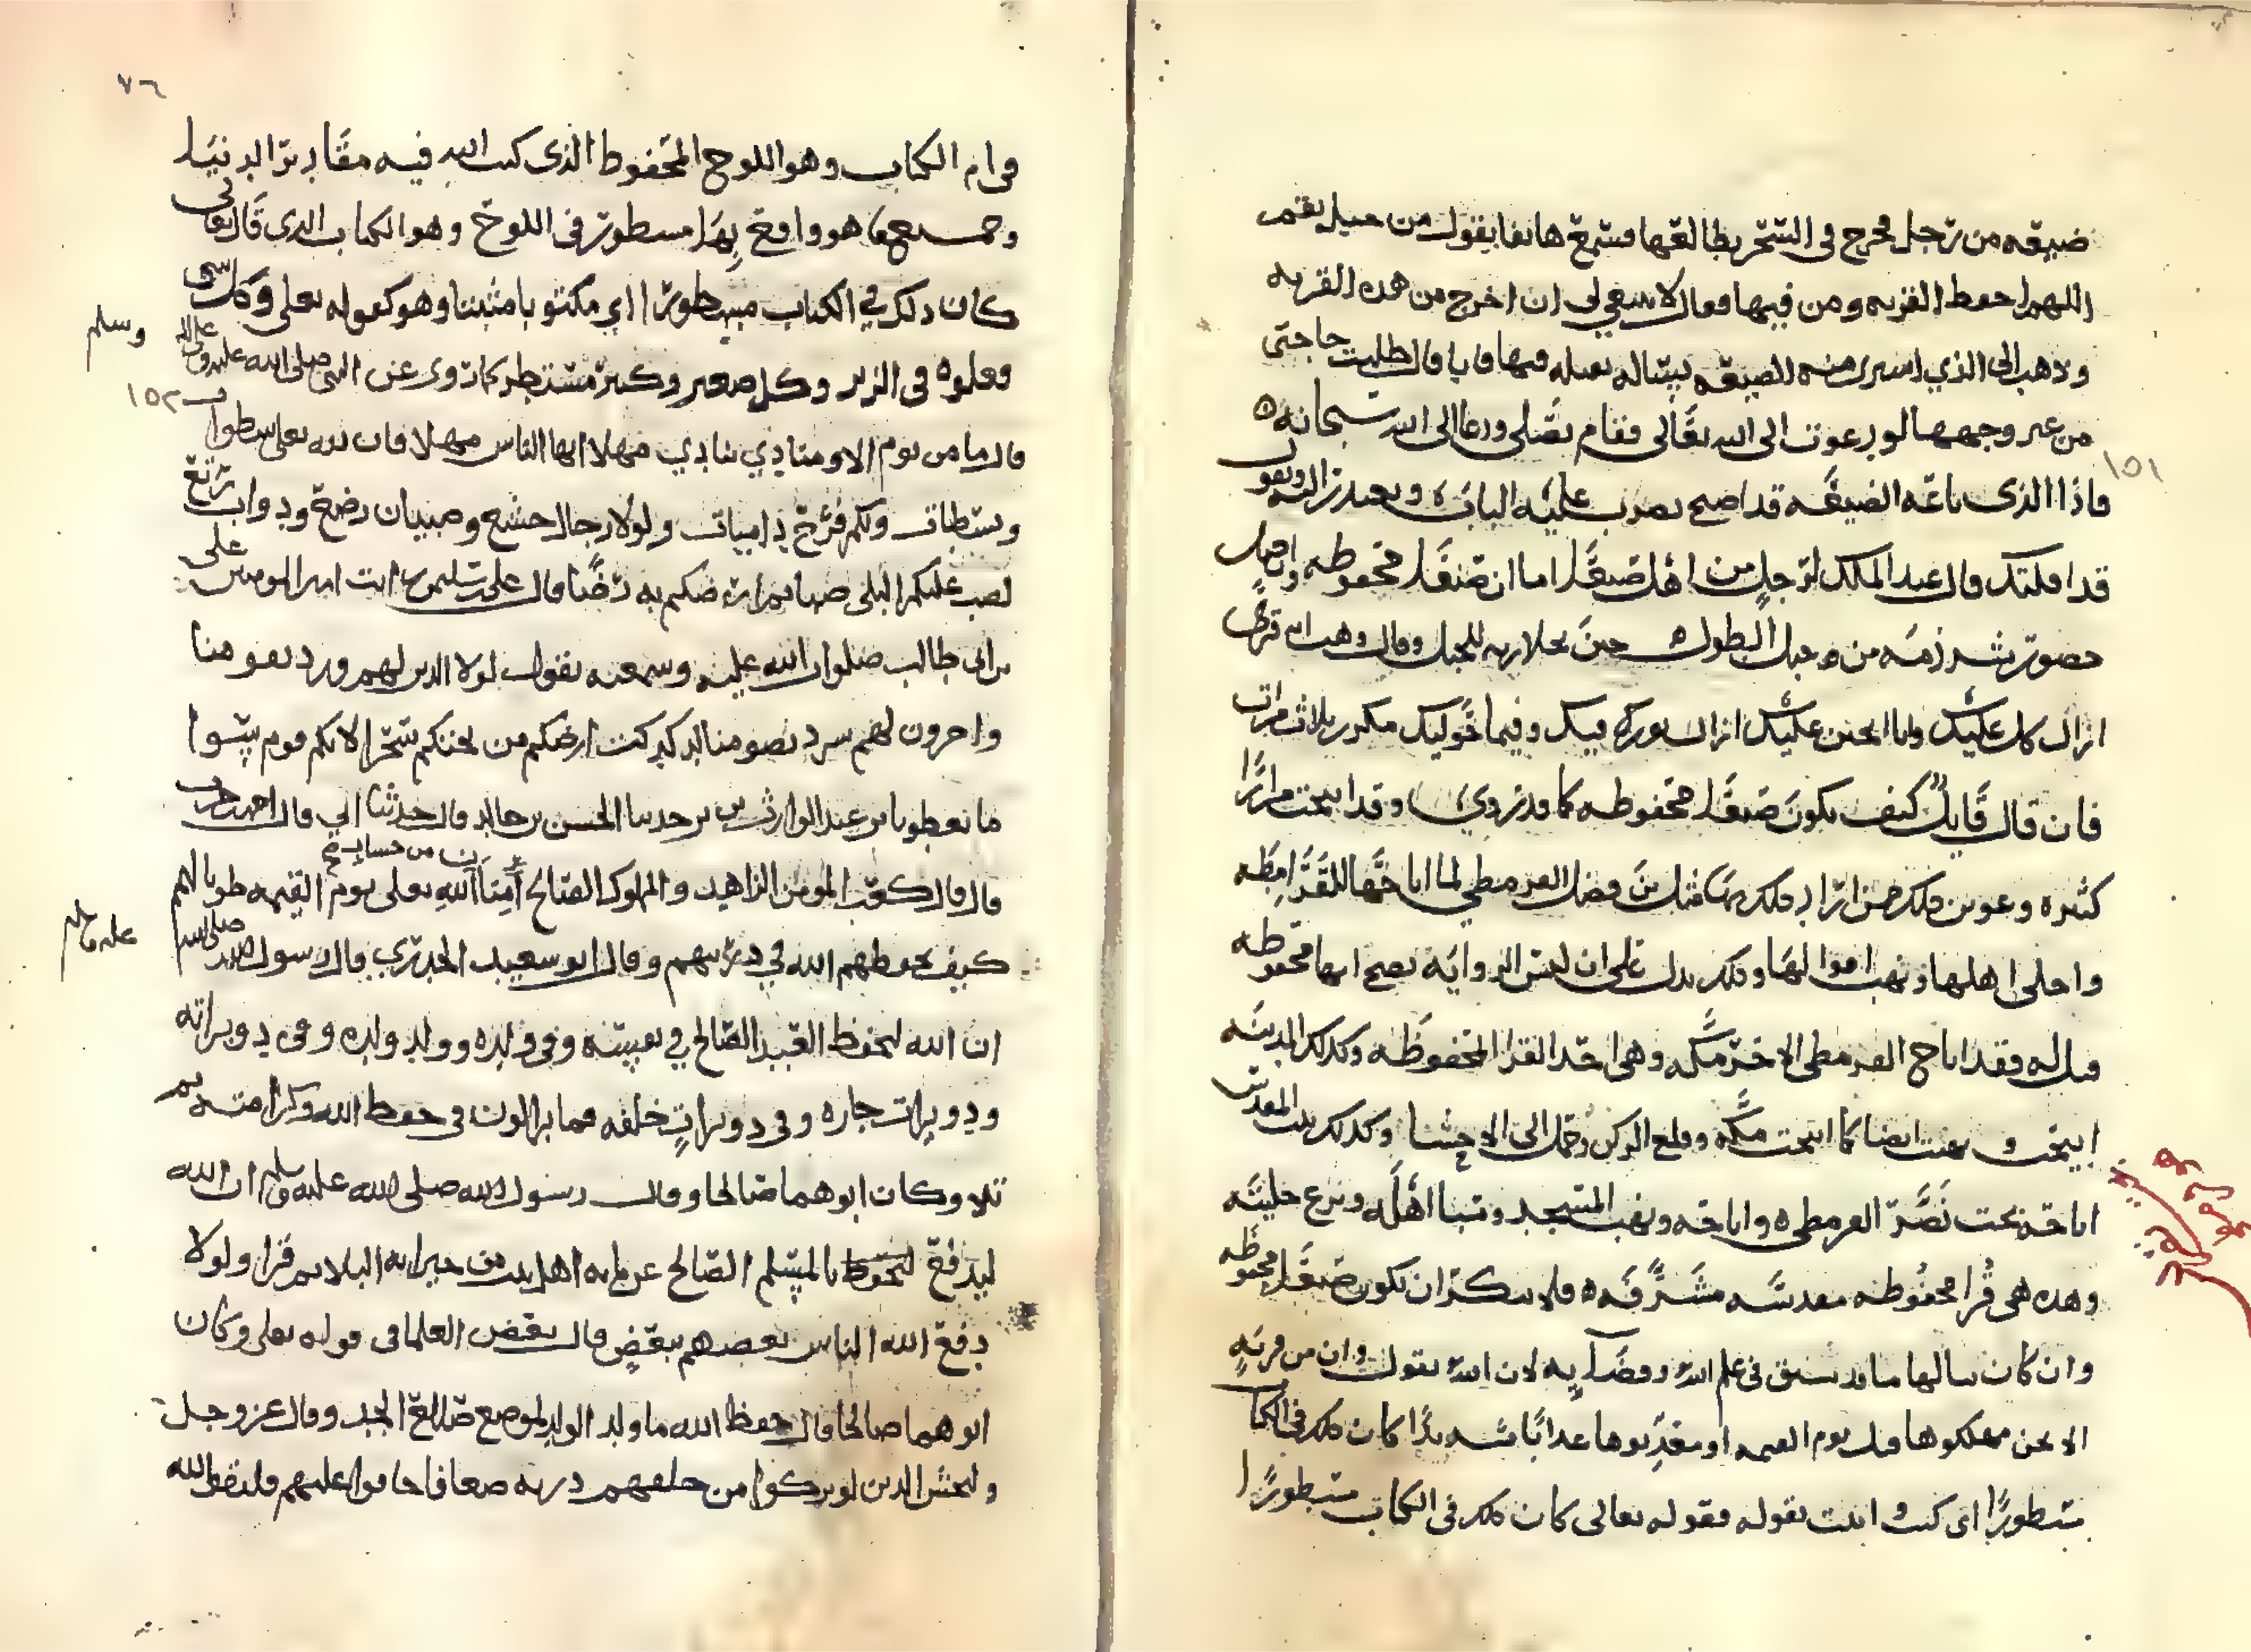 ضيعه من رجل فخرج في السحر يطالعها فسمع هاتفا يقول من جبل نقم
اللهم احفظ القريه ومن فيها فقال لا ينبغي لي ان اخرج من هذه القريه
وذهب الى الذي اشترى منه الضيعه يساله يقيله فيها فابا قال طلبت حاجتي
من غير وجهها لو دعوت الى الله تعالى فقام يصلي ودعا الى الله سبحانه
١٥١
فاذا الذي باعه الضيعه قد اصبح يضرب عليه الباب ويقول
قد اقلتك قال عبد الملك لرجل من اهل صنعا اما ان صنعا محفوظه وان جبل
حضور شرذمه من جبل الطور حين تجلا ربه للجبل وقال وهب ابه قرى
ازال كل عليك وانا اتحنن عليك ازال بورك فيك وفيما حوليك مكرر ثلاث مرات
فان قال قايل كيف تكون صنعا محفوظه كما قد روي وقد ابيحت مرارا
كثيره وعوين ذلك مرارا وذلك مثل من فضل القرمطي لما اباحها للقرامطه
واجلى اهلها ونهب اموالها وذلك يدل على ان ليس الروايه تصح انها محفوظه
قيل له فقد اباح القرمطي الاخر مكه وهي احد القرا المحفوظه وكذلك المدينه
ابيحت ونهبت ايضا كما ابيحت مكه وقلع الركن وحمل الى الاحسا وكذلك بيت المقدس
اباحه بخت نصر القرمطي واباحه ونهب المسجد وسبا اهله ونزع حليته
وهذه هي قرا محفوظه مقدسه مشرفه فلا ينكر ان تكون صنعا محفوظه
وان كان نالها ما قد سبق في علم الله وقضايه لان الله يقول وان من قريه
الا نحن مهلكوها قبل يوم القيمه او معذبوها عذابا شديدا كان ذلك في الكتاب
مسطورا اي كتب واثبت بقوله فقوله تعالى كان ذلك في الكتاب مسطورا
٧٦
في ام الكتاب وهو اللوح المحفوظ الذي كتب الله فيه مقادير الدنيا
وجميع ما هو واقع بها مسطور في اللوح وهو الكتاب الذي قال تعالى
كان ذلك في الكتاب مسطورا اي مكتوبا مثبتا وهو كقوله تعلى وكل شي
فعلوه في الزبر وكل صغير وكبير مستطر كما روى عن النبي صلى الله عليه وعلى اله وسلم
١٥٢
قال ما من يوم الا ومنادي ينادي مهلا ايها الناس مهلا فان لله تعلى سطوات
وسطات ولكم قرح داميات ولولا رجال خشع وصبيان رضع ودواب رتع
لصب عليكم البلى صبا ثم ارضكم به رضا قال على بن سليمن رايت امير المومنين على
بن ابي طالب صلوات الله عليه وسمعته يقول لولا الذين لهم ورد يقومنا
واخرون لهم سرد يصومنا لدكدكت ارضكم من تحتكم سحرا لانكم قوم سوا
ما تعطونا بن عبد الوارث حدثنا الحسن بن خالد قال حدثنا ابي قال احمد بن حرب
من حساب
قال قال كعب المومن الزاهد والمملوك الصالح امنا الله تعلى يوم القيمه طوبا لهم
كيف يحفظهم الله في ديرتهم وقال ابو سعيد الخدري قال رسول الله صلى الله عليه واله
ان الله ليحفظ العبد الصالح في نفسه وفي ولده وولد ولده وفي دويراته
ودويرات جاره وفي دويرات خلفه فما يزالون في حفظ الله وكرامته ثم
تلا وكان ابوهما صالحا وقال رسول الله صلى الله عليه وسلم ان الله
ليدفع بالمسلم الصالح عن مايه اهل بيت من جيرانه البلا ثم قرا ولولا
دفع الله الناس بعضهم ببعض قال بعض العلما في قوله تعلى وكان
ابوهما صالحا قال حفظ الله ما ولد الولد لموضع صلاح الجد وقال عز وجل
وليخش الذين لو تركوا من خلفهم ذريه ضعافا خافوا عليهم فليتقوا الله